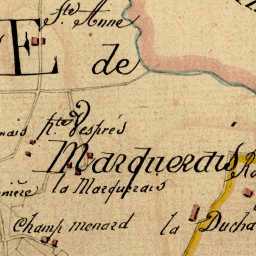 Ste Anne
E de
pte Vesprés
Marquerais
la Marquerais
Champ menard
la Ducha